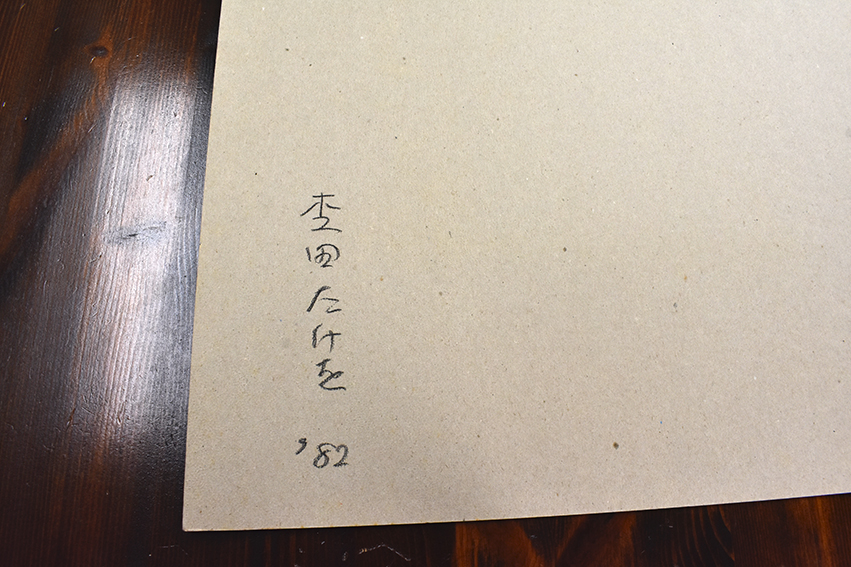 杢田たけを
'82